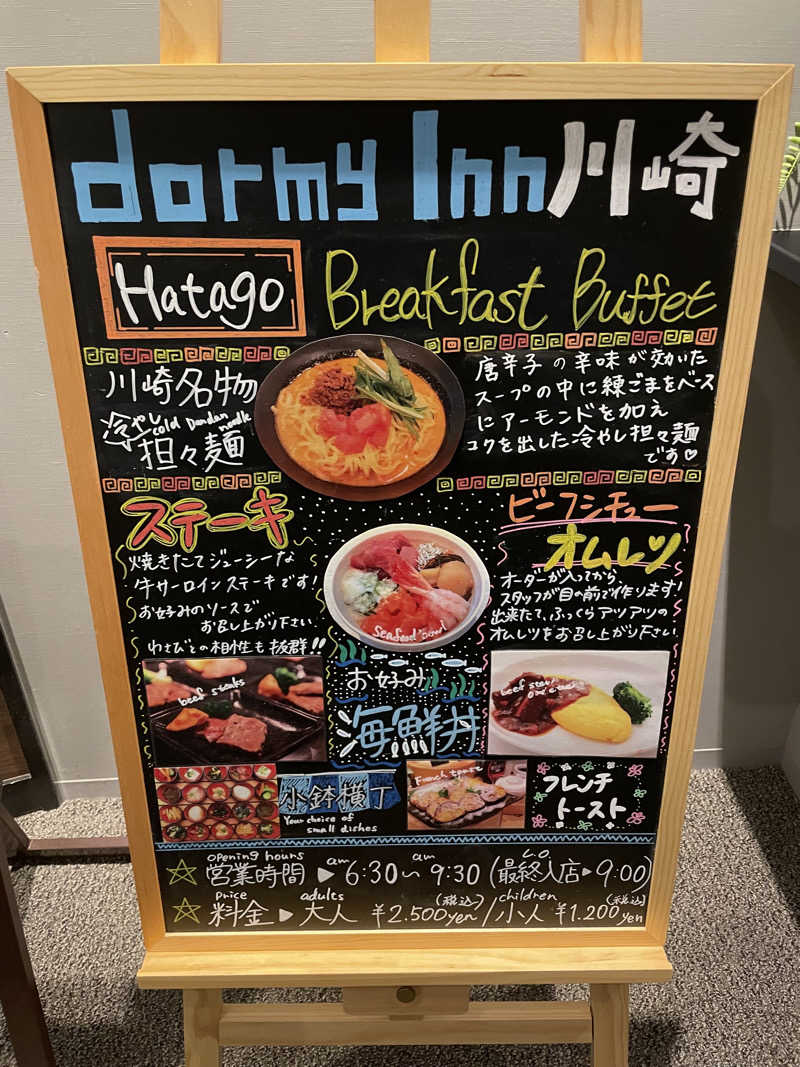 dormy Inn 川崎
Hatago Breakfast Buffet
川崎名物
冷やし cold Dandan noodle
担々麺
唐辛子の辛味が効いた
スープの中に練ごまをベース
にアーモンドを加え
コクを出した冷やし担々麺
です♡
ステーキ
焼きたてジューシーな
牛サーロインステーキです!
お好みのソースで
お召し上がり下さい
わさびとの相性も抜群!!
ビーフシチュー
オムレツ
オーダーが入ってから
スタッフが目の前で作ります!
出来たて、ふっくらアツアツの
オムレツをお召し上がり下さい
Seafood bowl
お好み
海鮮丼
beef steaks
beef stew
小鉢横丁
Your choice of
small dishes
French toast
フレンチ
トースト
opening hours
営業時間 ▶ am 6:30 ~ am 9:30 (L.O 最終入店▶9:00)
price adults (税込) children (税込)
料金 ▶ 大人 ¥2.500yen / 小人 ¥1.200yen